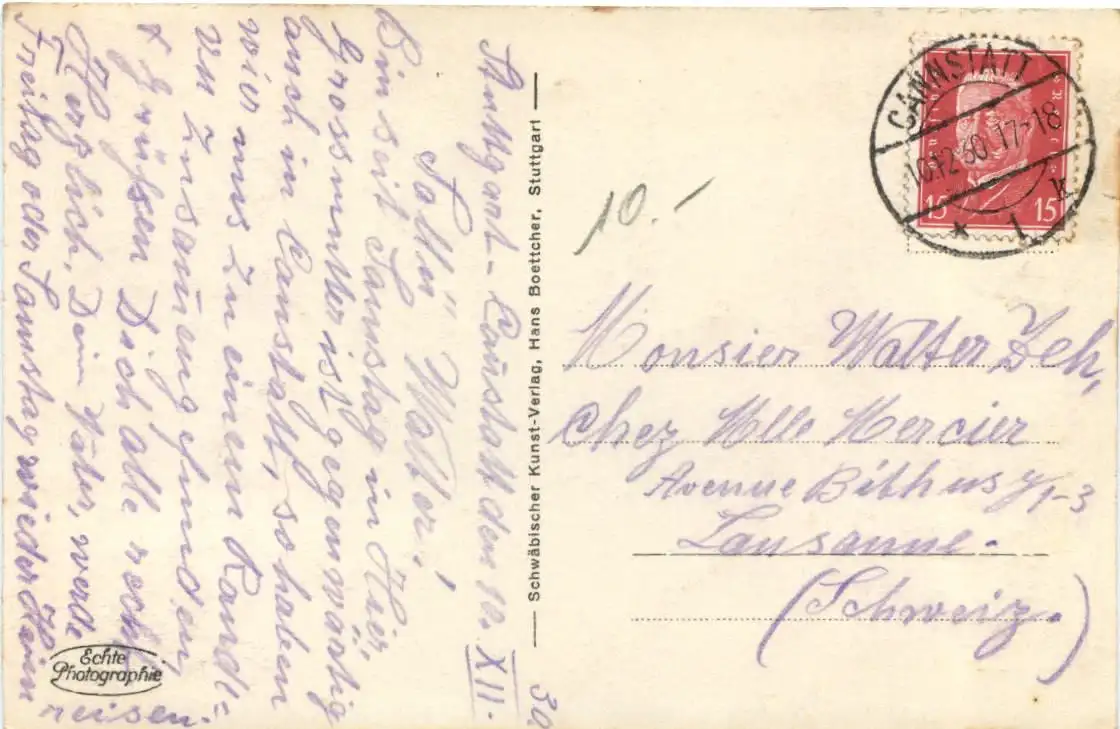 Stuttgart-Canstatt den 10. XII. 30.
Salü Walter!
Bin seit Samstag in Hier,
Grossmutter ist gegenwärtig
auch in Canstatt, so haben
wier uns zu einem Randе-
vu Zusammengefunden,
Grüssen Dich alle recht
Herzlich, Dein Vater, werde
Freitag oder Samstag wieder Heim
reisen.
Echte
Photographie
Schwäbischer Kunst-Verlag, Hans Boettcher, Stuttgart
10.-
CANNSTATT
10.12.30. 17-18
* 1 k
15 15
Monsier Walter Zeh,
Chez Mlle Mercier
Avenue Bithus 1-3
Lausanne.
(Schweiz.)